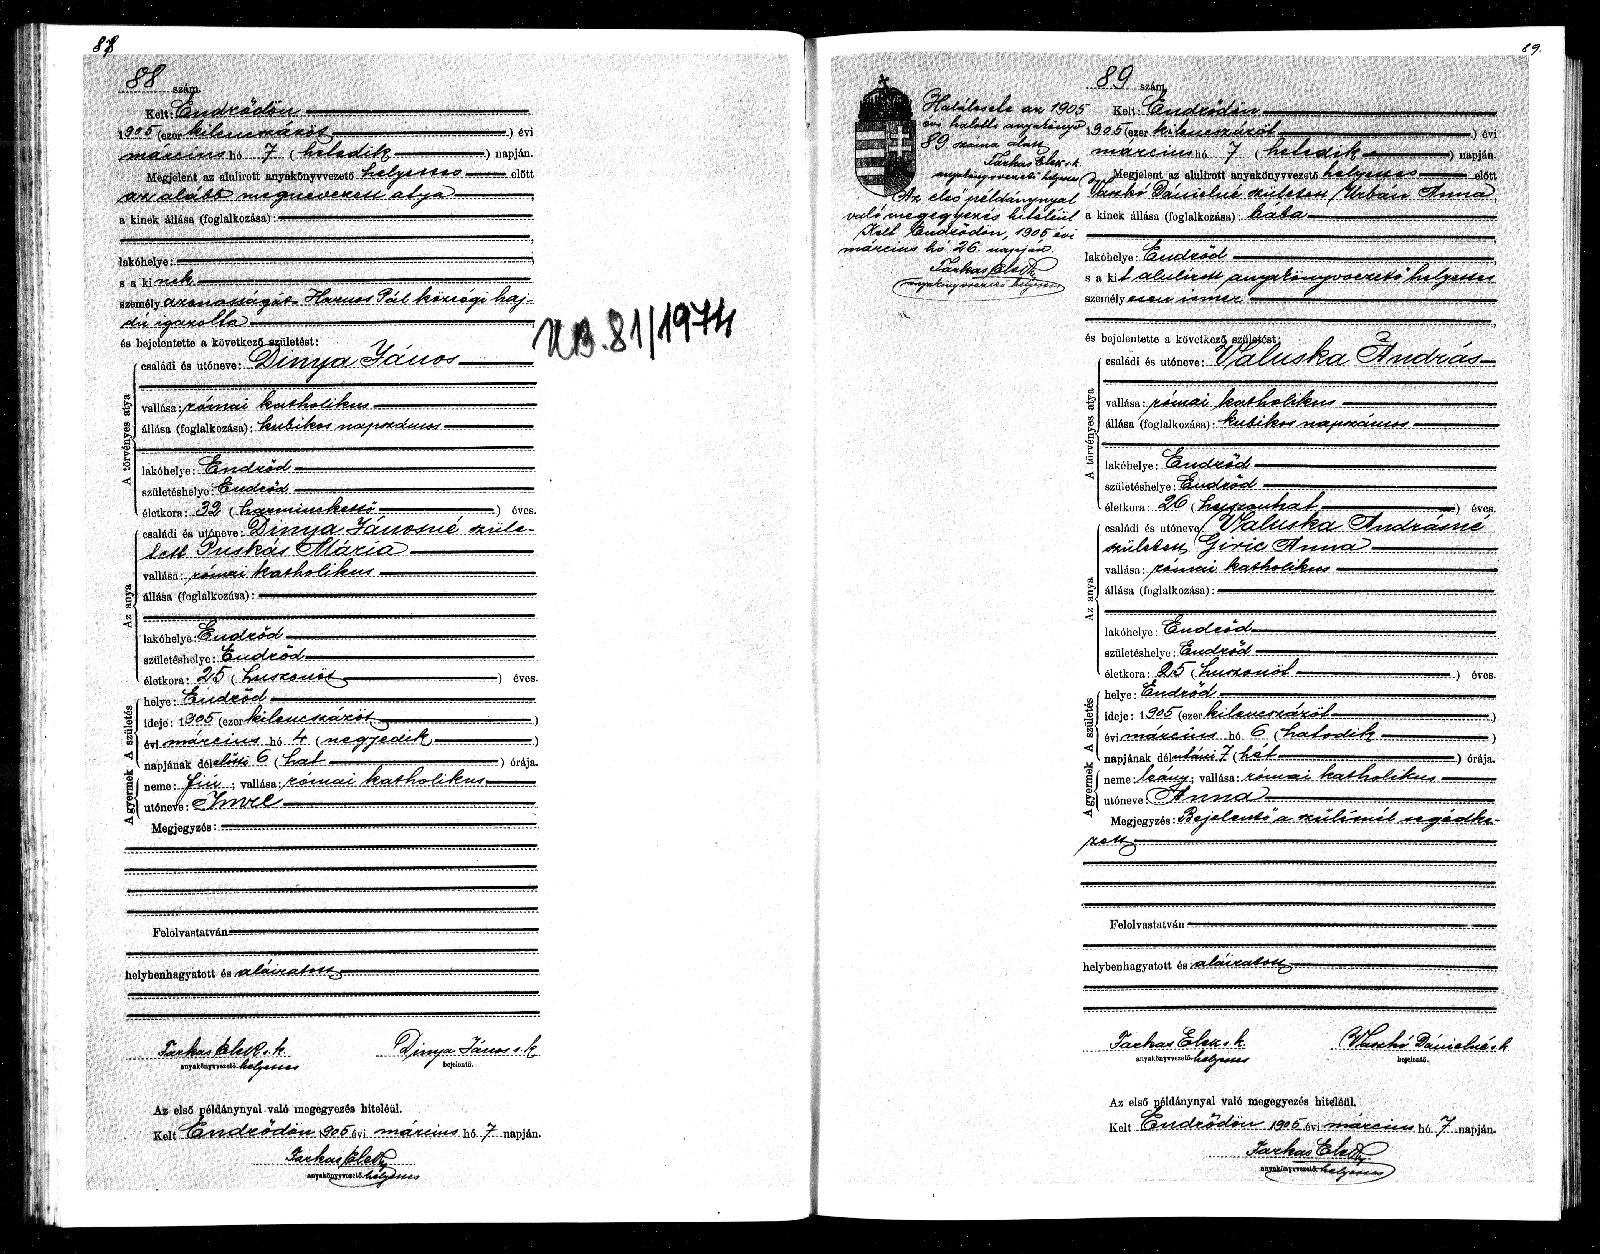 88
88 szám.
Kelt: Endrődön
1905 (ezer kilencszázöt) évi
március hó 7 (hetedik) napján.
Megjelent az alulirott anyakönyvvezető helyettes előtt
az alább megnevezett atya
a kinek állása (foglalkozása):
lakóhelye:
s a kinek
személy azonosságát Harnos Pál községi haj-
dú igazolta
és bejelentette a következő születést:
A törvényes atya
családi és utóneve: Dinya János
vallása: római katholikus
állása (foglalkozása): kubikos napszámos
lakóhelye: Endrőd
születéshelye: Endrőd
életkora: 32 (harminckettő) éves.
Az anya
családi és utóneve: Dinya Jánosné szüle-
tett Puskás Mária
vallása: római katholikus
állása (foglalkozása):
lakóhelye: Endrőd
születéshelye: Endrőd
életkora: 25 (huszonöt) éves.
A születés
helye: Endrőd
ideje: 1905 (ezer kilencszázöt)
évi március hó 4 (negyedik)
napjának délelőtti 6 (hat) órája.
A gyermek
neme: fiú; vallása: római katholikus
utóneve: Imre
Megjegyzés:
Felolvastatván
helybenhagyatott és aláiratott
Farkas Elek s. k. Dinya János s. k.
anyakönyvvezető helyettes bejelentő.
Az első példánynyal való megegyezés hiteléül.
Kelt Endrődön 1905 évi március hó 7 napján.
Farkas Elek
anyakönyvvezető helyettes
81/1974
89.
Halálesete az 1905
évi halotti anyakönyv
89 száma alatt
Farkas Elek s. k.
anyakönyvvezető helyettes
Az első példánynyal
való megegyezés hiteléül
Kelt Endrődön, 1905 évi
március hó 26. napján.
Farkas Elek
anyakönyvvezető helyettes
89 szám.
Kelt: Endrődön
1905 (ezer kilencszázöt) évi
március hó 7 (hetedik) napján.
Megjelent az alulirott anyakönyvvezető helyettes előtt
Vaszkó Dánielné született Urbán Anna
a kinek állása (foglalkozása): bába
lakóhelye: Endrőd
s a kit alulirott anyakönyvvezető helyettes
személyesen ismer
és bejelentette a következő születést:
A törvényes atya
családi és utóneve: Valuska András
vallása: római katholikus
állása (foglalkozása): kubikos napszámos
lakóhelye: Endrőd
születéshelye: Endrőd
életkora: 26 (huszonhat) éves.
Az anya
családi és utóneve: Valuska Andrásné
született Giric Anna
vallása: római katholikus
állása (foglalkozása):
lakóhelye: Endrőd
születéshelye: Endrőd
életkora: 25 (huszonöt) éves.
A születés
helye: Endrőd
ideje: 1905 (ezer kilencszázöt)
évi március hó 6 (hatodik)
napjának délutáni 7 (hét) órája.
A gyermek
neme: leány; vallása: római katholikus
utóneve: Anna
Megjegyzés: Bejelentő a szülésnél segédke-
zett
Felolvastatván
helybenhagyatott és aláiratott
Farkas Elek s. k. Vaszkó Dánielné s. k.
anyakönyvvezető helyettes bejelentő.
Az első példánynyal való megegyezés hiteléül.
Kelt Endrődön 1905 évi március hó 7 napján.
Farkas Elek
anyakönyvvezető helyettes